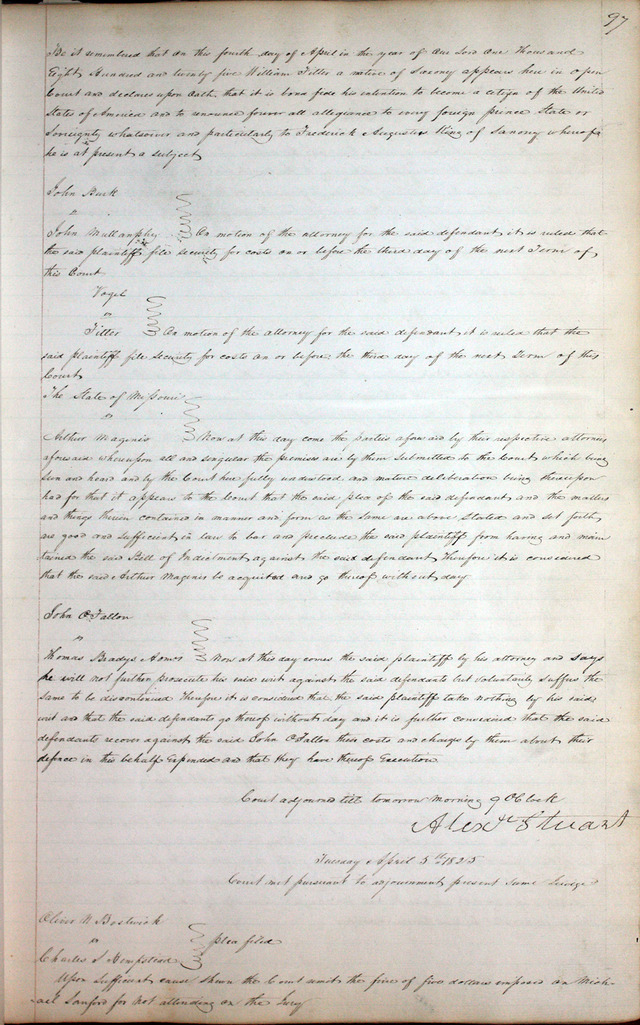 97
Be it remembered that on this fourth day of April in the year of our Lord One Thousand
Eight Hundred and twenty five William Tiller a native of Saxony appears here in open
Court and declares upon Oath that it is bona fide his intention to become a citizen of the United
States of America and to renounce forever all allegiance to every foreign prince State or
Sovereignty whatsoever and particularly to Frederick Augustus King of Saxony whereof
he is at present a subject
John Buck
vs
John Mullanphy On motion of the attorney for the said defendant it is ruled that
the said plaintiff file security for costs on or before the third day of the next Term of
this Court
Vogel
vs
Tiller On motion of the attorney for the said defendant it is ruled that the
said plaintiff file security for costs on or before the third day of the next Term of this
Court
The State of Missouri
vs
Arthur Magenis Now at this day come the parties aforesaid by their respective attornies
aforesaid whereupon all and singular the premises are by them submitted to the Court which being
seen and heard and by the Court here fully understood and mature deliberation being thereupon
had for that it appears to the Court that the said plea of the said defendant and the matters
and things therein contained in manner and form as the same are above Stated and set forth
are good and sufficient in law to bar and preclude the said plaintiff from having and main
tained the said Bill of Indictment against the said defendant Therefore it is considered
that the said Arthur Magenis be acquitted and go thereof without day
John O'Fallon
vs
Thomas Bradys Admrs Now at this day comes the said plaintiff by his attorney and says
he will not further prosecute his said writ against the said defendants but voluntarily suffers the
same to be discontinued Therefore it is considered that the said plaintiff take nothing by his said
writ and that the said defendants go thereof without day and it is further considered that the said
defendants recover against the said John O'Fallon their costs and charges by them about their
defence in this behalf Expended and that they have thereof Execution
Court adjourned till tomorrow morning 9 O'Clock
Alexr Stuart
Tuesday April 5th 1825
Court met pursuant to adjournment present same Judge
Oliver W Bostwick
vs plea filed
Charles S Hempstead
Upon Sufficient cause shewn the Court remit the fine of five dollars imposed on Mich
ael Sanford for not attending on the Jury